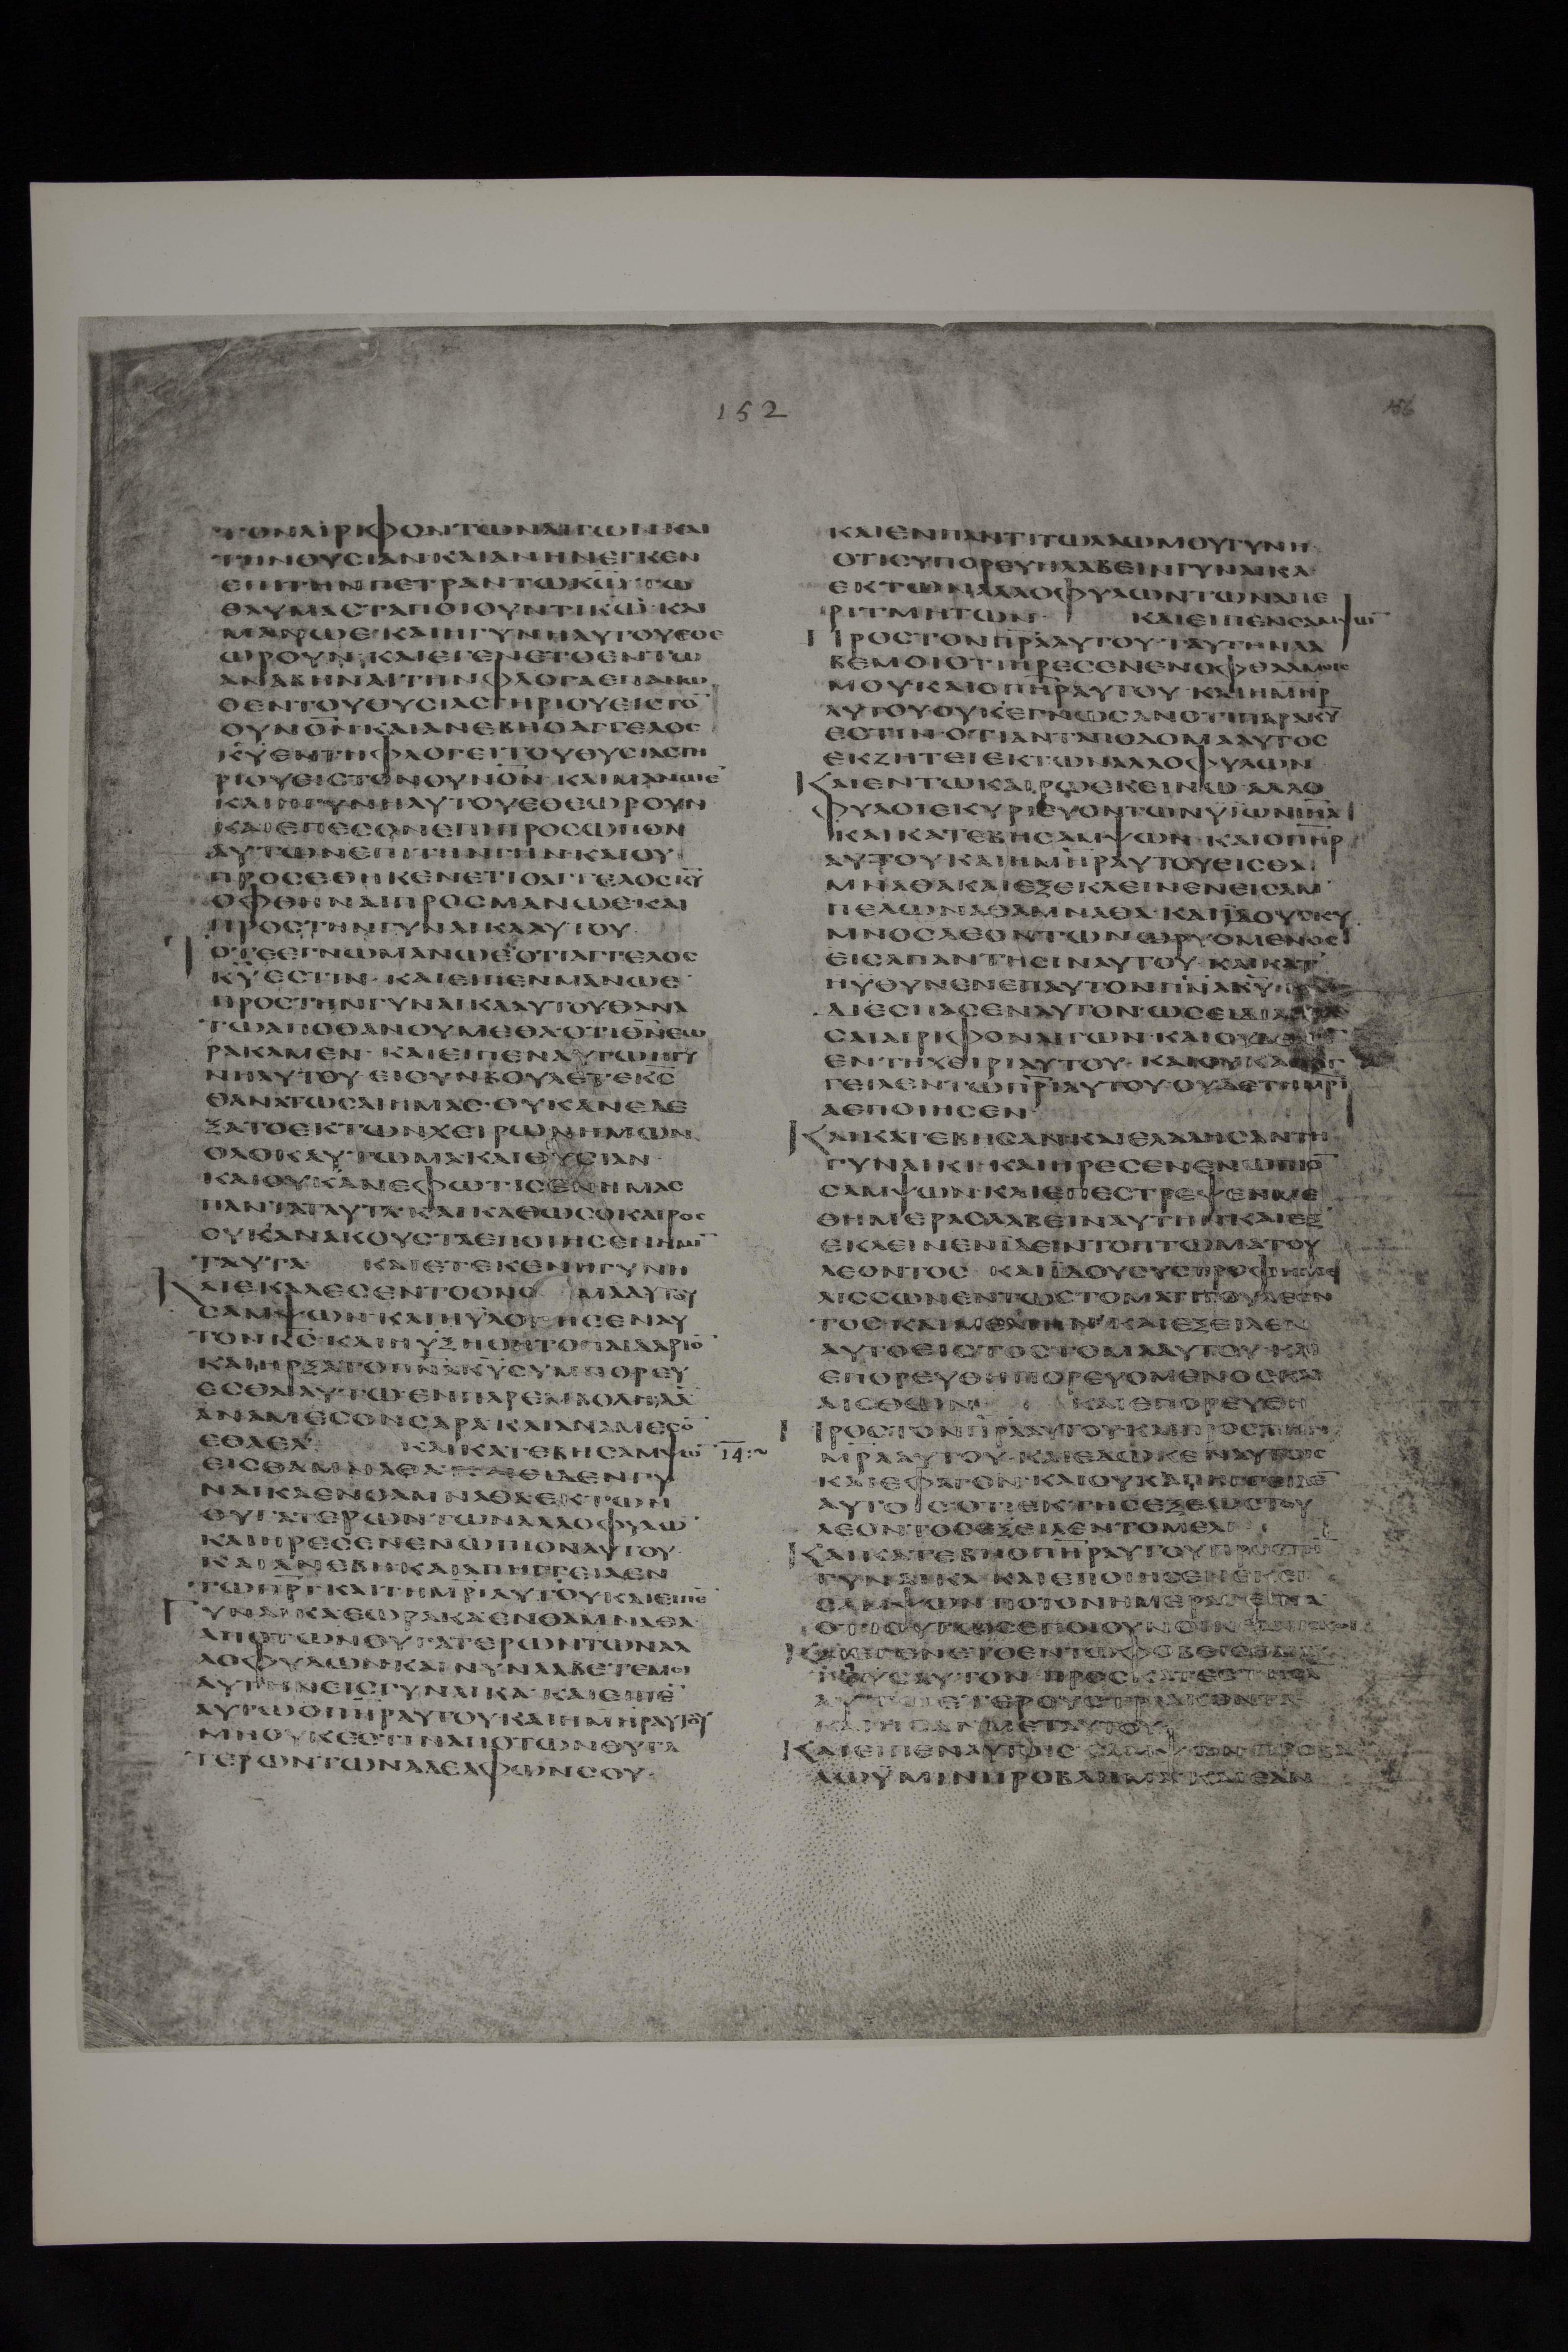 152
156
ΤΟΝΑΙΡΙΦΟΝΤΩΝΑΙΓΩΝΚΑΙ
ΤΗΝΘΥΣΙΑΝ·ΚΑΙΑΝΗΝΕΓΚΕΝ
ΕΠΙΤΗΝΠΕΤΡΑΝΤΩΚΩ·ΤΩ
ΘΑΥΜΑΣΤΑΠΟΙΟΥΝΤΙΚΩ·ΚΑΙ
ΜΑΝΩΕ·ΚΑΙΗΓΥΝΗΑΥΤΟΥΕΘΕ
ΩΡΟΥΝ·ΚΑΙΕΓΕΝΕΤΟΕΝΤΩ
ΑΝΑΒΗΝΑΙΤΗΝΦΛΟΓΑΕΠΑΝΩ
ΘΕΝΤΟΥΘΥΣΙΑΣΤΗΡΙΟΥΕΙΣΤΟ̅
ΟΥΝΟ̅Ν·ΚΑΙΑΝΕΒΗΟΑΓΓΕΛΟΣ
ΚΥ̅ΕΝΤΗΦΛΟΓΕΙΤΟΥΘΥΣΙΑΣΤΗ
ΡΙΟΥΕΙΣΤΟΝΟΥΝΟ̅Ν·ΚΑΙΜΑΝΩΕ
ΚΑΙΗΓΥΝΗΑΥΤΟΥΕΘΕΩΡΟΥΝ
ΚΑΙΕΠΕΣΟΝΕΠΙΠΡΟΣΩΠΟΝ
ΑΥΤΩΝΕΠΙΤΗΝΓΗΝ·ΚΑΙΟΥ
ΠΡΟΣΕΘΗΚΕΝΕΤΙΟΑΓΓΕΛΟΣΚΥ̅
ΟΦΘΗΝΑΙΠΡΟΣΜΑΝΩΕ·ΚΑΙ
ΠΡΟΣΤΗΝΓΥΝΑΙΚΑΑΥΤΟΥ·
ΤΟΤΕΕΓΝΩΜΑΝΩΕΟΤΙΑΓΓΕΛΟΣ
ΚΥ̅ΕΣΤΙΝ·ΚΑΙΕΙΠΕΝΜΑΝΩΕ
ΠΡΟΣΤΗΝΓΥΝΑΙΚΑΑΥΤΟΥΘΑΝΑ
ΤΩΑΠΟΘΑΝΟΥΜΕΘΑ·ΟΤΙΘ̅Ν̅ΕΩ
ΡΑΚΑΜΕΝ·ΚΑΙΕΙΠΕΝΑΥΤΩΗΓΥ
ΝΗΑΥΤΟΥ·ΕΙΟΥΝΒΟΥΛΕΤΕΚ̅Σ̅
ΘΑΝΑΤΩΣΑΙΗΜΑΣ·ΟΥΚΑΝΕΔΕ
ΞΑΤΟΕΚΤΩΝΧΕΙΡΩΝΗΜΩΝ
ΟΛΟΚΑΥΤΩΜΑΚΑΙΘΥΣΙΑΝ·
ΚΑΙΟΥΚΑΝΕΦΩΤΙΣΕΝΗΜΑΣ
ΠΑΝΤΑΤΑΥΤΑ·ΚΑΙΚΑΘΩΣΟΚΑΙΡΟΣ
ΟΥΚΑΝΑΚΟΥΣΤΑΕΠΟΙΗΣΕΝΗΜΙ̅
ΤΑΥΤΑ ΚΑΙΕΤΕΚΕΝΗΓΥΝΗ
ΚΑΙΕΚΑΛΕΣΕΝΤΟΟΝΟΜΑΑΥΤΟΥ
ΣΑΜΨΩΝ·ΚΑΙΗΥΛΟΓΗΣΕΝΑΥ
ΤΟΝΚ̅Σ̅·ΚΑΙΗΥΞΗΘΗΤΟΠΑΙΔΑΡΙΟ̅
ΚΑΙΗΡΞΑΤΟΠ̅Ν̅ΑΚΥ̅ΣΥΜΠΟΡΕΥ
ΕΣΘΑΙΑΥΤΩΕΝΠΑΡΕΜΒΟΛΗΔΑ̅
ΑΝΑΜΕΣΟΝΣΑΡΑ·ΚΑΙΑΝΑΜΕΣΟ̅
ΕΘΑΕΛ· ΚΑΙΚΑΤΕΒΗΣΑΜΨΩ̅ 14:~
ΕΙΣΘΑΜΝΑΘΑ ΕΙΔΕΝΓΥ
ΝΑΙΚΑΕΝΘΑΜΝΑΘΑΕΚΤΩΝ
ΘΥΓΑΤΕΡΩΝΤΩΝΑΛΛΟΦΥΛΩ̅
ΚΑΙΗΡΕΣΕΝΕΝΩΠΙΟΝΑΥΤΟΥ·
ΚΑΙΑΝΕΒΗΚΑΙΑΠΗΓΓΕΙΛΕΝ
ΤΩΠ̅Ρ̅Ι·ΚΑΙΤΗΜ̅Ρ̅ΙΑΥΤΟΥΚΑΙΕΙΠΕ̅
ΓΥΝΑΙΚΑΕΩΡΑΚΑΕΝΘΑΜΝΑΘΑ
ΑΠΟΤΩΝΘΥΓΑΤΕΡΩΝΤΩΝΑΛ
ΛΟΦΥΛΩΝ·ΚΑΙΝΥΝΛΑΒΕΤΕΜΟΙ
ΑΥΤΗΝΕΙΣΓΥΝΑΙΚΑ·ΚΑΙΕΙΠΕ̅
ΑΥΤΩΟΠ̅Η̅Ρ̅ΑΥΤΟΥΚΑΙΗΜ̅Η̅Ρ̅ΑΥΤΟΥ
ΜΗΟΥΚΕΣΤΙΝΑΠΟΤΩΝΘΥΓΑ
ΤΕΡΩΝΤΩΝΑΔΕΛΦΩΝΣΟΥ·
ΚΑΙΕΝΠΑΝΤΙΤΩΛΑΩΜΟΥΓΥΝΗ·
ΟΤΙΣΥΠΟΡΕΥΗΛΑΒΕΙΝΓΥΝΑΙΚΑ
ΕΚΤΩΝΑΛΛΟΦΥΛΩΝΤΩΝΑΠΕ
ΡΙΤΜΗΤΩΝ· ΚΑΙΕΙΠΕΝΣΑΜΨΩ̅
ΠΡΟΣΤΟΝΠ̅Ρ̅ΑΑΥΤΟΥ·ΤΑΥΤΗΝΛΑ
ΒΕΜΟΙΟΤΙΗΡΕΣΕΝΕΝΟΦΘΑΛΜΟΙΣ
ΜΟΥ·ΚΑΙΟΠ̅Η̅Ρ̅ΑΥΤΟΥ·ΚΑΙΗΜ̅Η̅Ρ̅
ΑΥΤΟΥΟΥΚΕΓΝΩΣΑΝΟΤΙΠΑΡΑΚΥ̅
ΕΣΤΙΝ·ΟΤΙΑΝΤΑΠΟΔΟΜΑΑΥΤΟΣ
ΕΚΖΗΤΕΙΕΚΤΩΝΑΛΛΟΦΥΛΩΝ
ΚΑΙΕΝΤΩΚΑΙΡΩΕΚΕΙΝΩ·ΑΛΛΟ
ΦΥΛΟΙΕΚΥΡΙΕΥΟΝΤΩΝΥΙΩΝΙΗ̅Λ̅
ΚΑΙΚΑΤΕΒΗΣΑΜΨΩΝ·ΚΑΙΟΠ̅Η̅Ρ̅
ΑΥΤΟΥΚΑΙΗΜ̅Η̅Ρ̅ΑΥΤΟΥΕΙΣΘΑ
ΜΝΑΘΑΚΑΙΕΞΕΚΛΕΙΝΕΝΕΙΣΑΜ
ΠΕΛΩΝΑΘΑΜΝΑΘΑ·ΚΑΙΙΔΟΥΣΚΥ
ΜΝΟΣΛΕΟΝΤΩΝΩΡΥΟΜΕΝΟΣ
ΕΙΣΑΠΑΝΤΗΣΙΝΑΥΤΟΥ·ΚΑΙΚΑΤ
ΗΥΘΥΝΕΝΕΠΑΥΤΟΝΠ̅Ν̅ΑΚΥ̅
ΔΙΕΣΠΑΣΕΝΑΥΤΟΝ·ΩΣΕΙΔΙΑΣΠΑ
ΣΑΙΑΙΡΙΦΟΝΑΙΓΩΝ·ΚΑΙΟΥΔΕΝ
ΕΝΤΗΧΕΙΡΙΑΥΤΟΥ·ΚΑΙΟΥΚΑΠΗΓ
ΓΕΙΛΕΝΤΩΠ̅Ρ̅ΙΑΥΤΟΥ·ΟΥΔΕΤΗΜ̅Ρ̅Ι
ΑΕΠΟΙΗΣΕΝ·
ΚΑΙΚΑΤΕΒΗΣΑΝΚΑΙΕΛΑΛΗΣΑΝΤΗ
ΓΥΝΑΙΚΙ·ΚΑΙΗΡΕΣΕΝΕΝΩΠΙΟ̅
ΣΑΜΨΩΝ·ΚΑΙΕΠΕΣΤΡΕΨΕΝΜΕ
ΘΗΜΕΡΑΣΛΑΒΕΙΝΑΥΤΗΝ·ΚΑΙΕΞ
ΕΚΛΕΙΝΕΝΙΔΕΙΝΤΟΠΤΩΜΑΤΟΥ
ΛΕΟΝΤΟΣ·ΚΑΙΙΔΟΥΣΥΣΤΡΟΦΗΜΕ
ΛΙΣΣΩΝΕΝΤΩΣΤΟΜΑΤΙΤΟΥΛΕΟΝ
ΤΟΣ·ΚΑΙΜΕΛΙΗΝ·ΚΑΙΕΞΕΙΛΕΝ
ΑΥΤΟΕΙΣΤΟΣΤΟΜΑΑΥΤΟΥ·ΚΑΙ
ΕΠΟΡΕΥΘΗΠΟΡΕΥΟΜΕΝΟΣΚΑΙ
ΑΙΣΘΩΝ· ΚΑΙΕΠΟΡΕΥΘΗ
ΠΡΟΣΤΟΝΠ̅Ρ̅ΑΑΥΤΟΥΚΑΙΠΡΟΣΤΗΝ
Μ̅Ρ̅ΑΑΥΤΟΥ·ΚΑΙΕΔΩΚΕΝΑΥΤΟΙΣ
ΚΑΙΕΦΑΓΟΝ·ΚΑΙΟΥΚΑΠΗΓΓΕΙΛΕ̅
ΑΥΤΟΙΣΟΤΙΕΚΤΗΣΕΞΕΩΣΤΟΥ
ΛΕΟΝΤΟΣΕΞΕΙΛΕΝΤΟΜΕΛΙ
ΚΑΙΚΑΤΕΒΗΟΠ̅Η̅Ρ̅ΑΥΤΟΥΠΡΟΣΤΗ̅
ΓΥΝΑΙΚΑ·ΚΑΙΕΠΟΙΗΣΕΝΕΚΕΙ
ΣΑΜΨΩΝΠΟΤΟΝΗΜΕΡΑΣΕΠΤΑ
ΟΤΙΟΥΤΩΣΕΠΟΙΟΥΝΟΙΝΕΑΝΙΣΚΟΙ
ΚΑΙΕΓΕΝΕΤΟΕΝΤΩΦΟΒΕΙΣΘΑΙ
ΑΥΤΟΥΣΑΥΤΟΝ·ΠΡΟΣΚΑΤΕΣΤΗΣΑ
ΑΥΤΩΕΤΕΡΟΥΣΤΡΙΑΚΟΝΤΑ
ΚΑΙΗΣΑΝΜΕΤΑΥΤΟΥ·
ΚΑΙΕΙΠΕΝΑΥΤΟΙΣΣΑΜΨΩΝ·ΠΡΟΒΑ
ΛΩΥΜΙΝΠΡΟΒΛΗΜΑ·ΚΑΙΕΑΝ